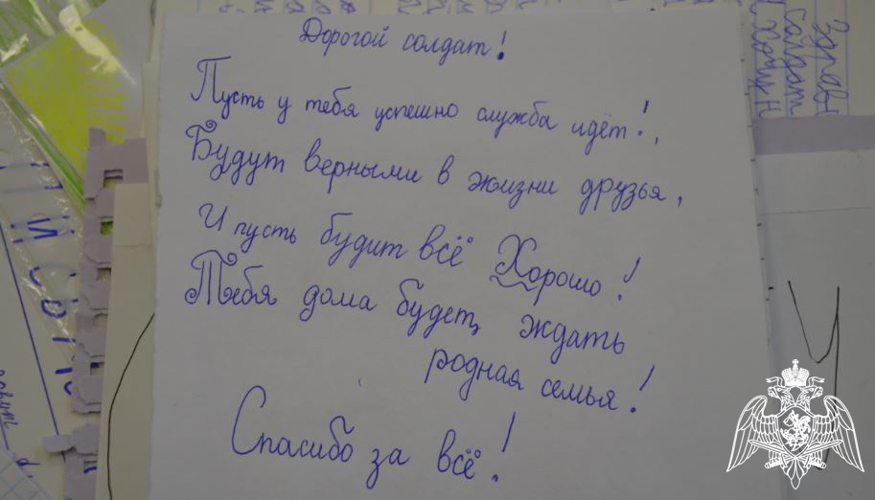 Дорогой солдат!
Пусть у тебя успешно служба идёт!,
Будут верными в жизни друзья,
И пусть будит всё Хорошо!
Тебя дома будет, ждать
родная семья!
Спасибо за всё!
Здрав
солдат
Я хочу